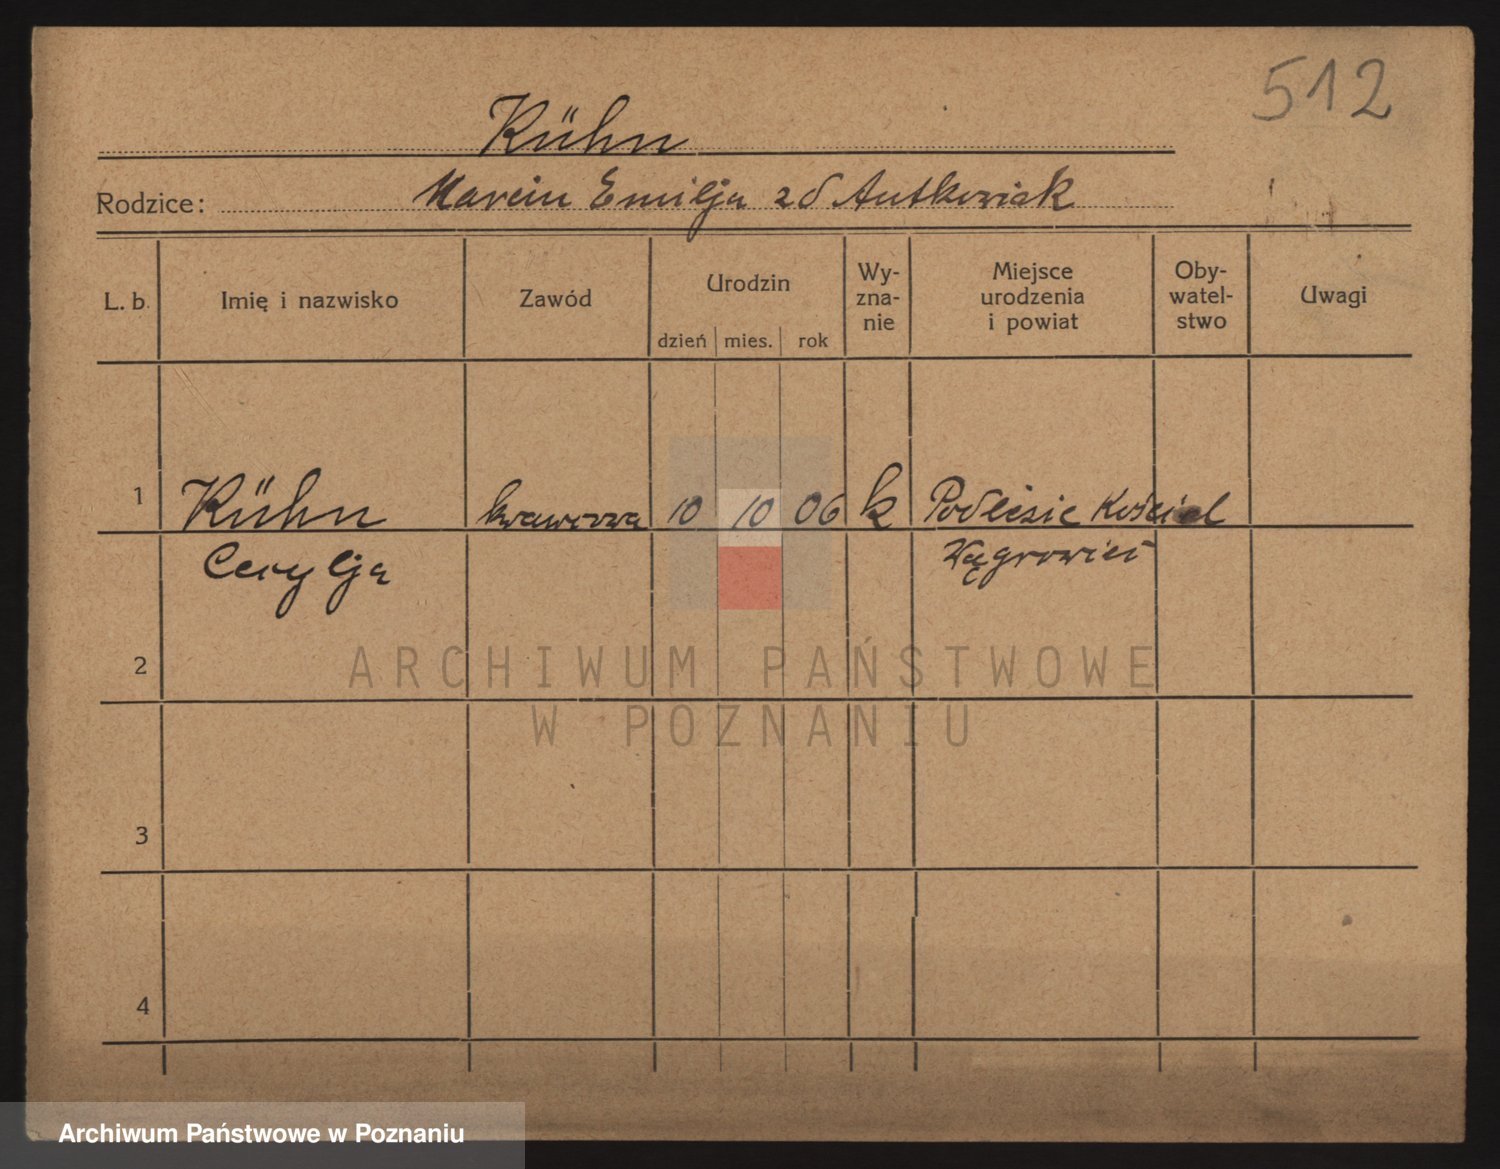 512
Kühn
Rodzice: Marcin Emilja zd Antkowiak
L. b. Imię i nazwisko Zawód Urodzin dzień mies. rok Wy-zna-nie Miejsce urodzenia i powiat Oby-watel-stwo Uwagi
1 Kühn krawcowa 10 10 06 k Podlesie Kościel
Cecylja Wągrowiec
2
ARCHIWUM PAŃSTWOWE
W POZNANIU
3
4
Archiwum Państwowe w Poznaniu